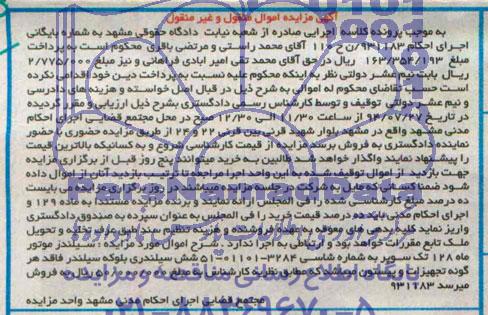 آگهی مزایده اموال منقول و غیر منقول
به موجب پرونده کلاسه اجرایی صادره از شعبه نیابت دادگاه حقوقی مشهد به شماره بایگانی
اجرای احکام ۹۳۱۱۸۳/ن ح ۱۱۰ آقای محمد راستی و مرتضی باقری محکوم است به پرداخت
مبلغ ۱۶۳/۳۵۴/۱۹۳ ریال در حق آقای محمد تقی امیر ابادی فراهانی و نیز مبلغ ۲/۷۷۵/۰۰۰
ریال بابت نیم عشر دولتی نظر به اینکه محکوم علیه نسبت به پرداخت دین خود اقدامی نکرده
است حسب تقاضای محکوم له اموالی به شرح ذیل در قبال اصل خواسته و هزینه های دادرسی
و نیم عشر دولتی توقیف و توسط کارشناس رسمی دادگستری بشرح ذیل ارزیابی و مقرر گردیده
در تاریخ ۹۴/۰۷/۲۷ از ساعت ۱۱/۳۰ الی ۱۲/۳۰ در محل مجتمع قضایی اجرای احکام
مدنی مشهد واقع در مشهد بلوار شهید قرنی بین قرنی ۲۲ و ۲۴ از طریق مزایده حضوری با حضور
نماینده دادگستری به فروش برسد مزایده از قیمت کارشناسی شروع و به کسانیکه بالاترین قیمت
را پیشنهاد نمایند واگذار خواهد شد طالبین به خرید میتوانند پنج روز قبل از برگزاری مزایده
جهت بازدید از اموال توقیف شده به این واحد اجرا مراجعه تا ترتیب بازدید آنان از اموال داده
شود ضمنا کسانی که مایل به شرکت در جلسه مزایده میباشند در روز برگزاری مزایده می بایست
ده درصد مبلغ کارشناسی شده را فی المجلس ارائه نمایند برنده مزایده مستندا به ماده ۱۲۹ و
اجرای احکام مدنی باید ده درصد قیمت خرید را فی المجلس به عنوان سپرده به صندوق دادگستری
واریز نماید کلیه بدهی های معوقه به عهده فروشنده و هزینه تنظیم سند طبق عرف تخلیه و تحویل
ملک تابع مقررات خواهد بود و ارتباطی به اجرا ندارد . شرح اموال مورد مزایده : سیلندر موتور
ماه ۱۲۸ تک سوپر به شماره شاسی شش سیلندری بلوکه سیلندر فاقد هر
گونه تجهیزات و پیستون میباشد که مطابق نظریه کارشناس به مبلغ ریال به فروش
میرسد ۹۳۱۱۸۳
مجتمع قضایی اجرای احکام مدنی مشهد واحد مزایده